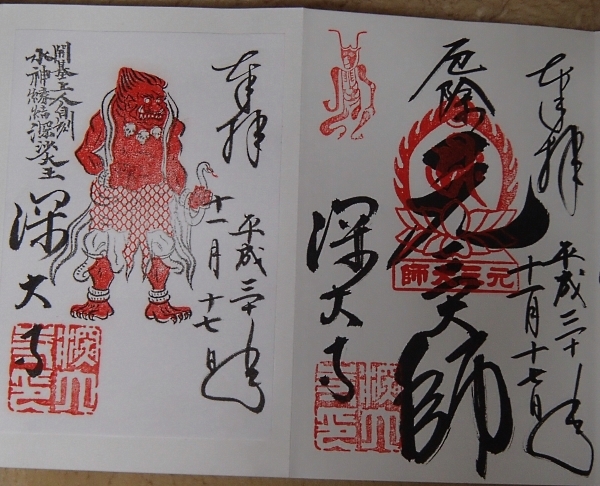 奉拝
平成三十年
十一月十七日
厄除
元三大師
元三大師
深大寺
奉拝
平成三十年
十一月十七日
開基上人自刻
水神縁結深沙大王
深大寺